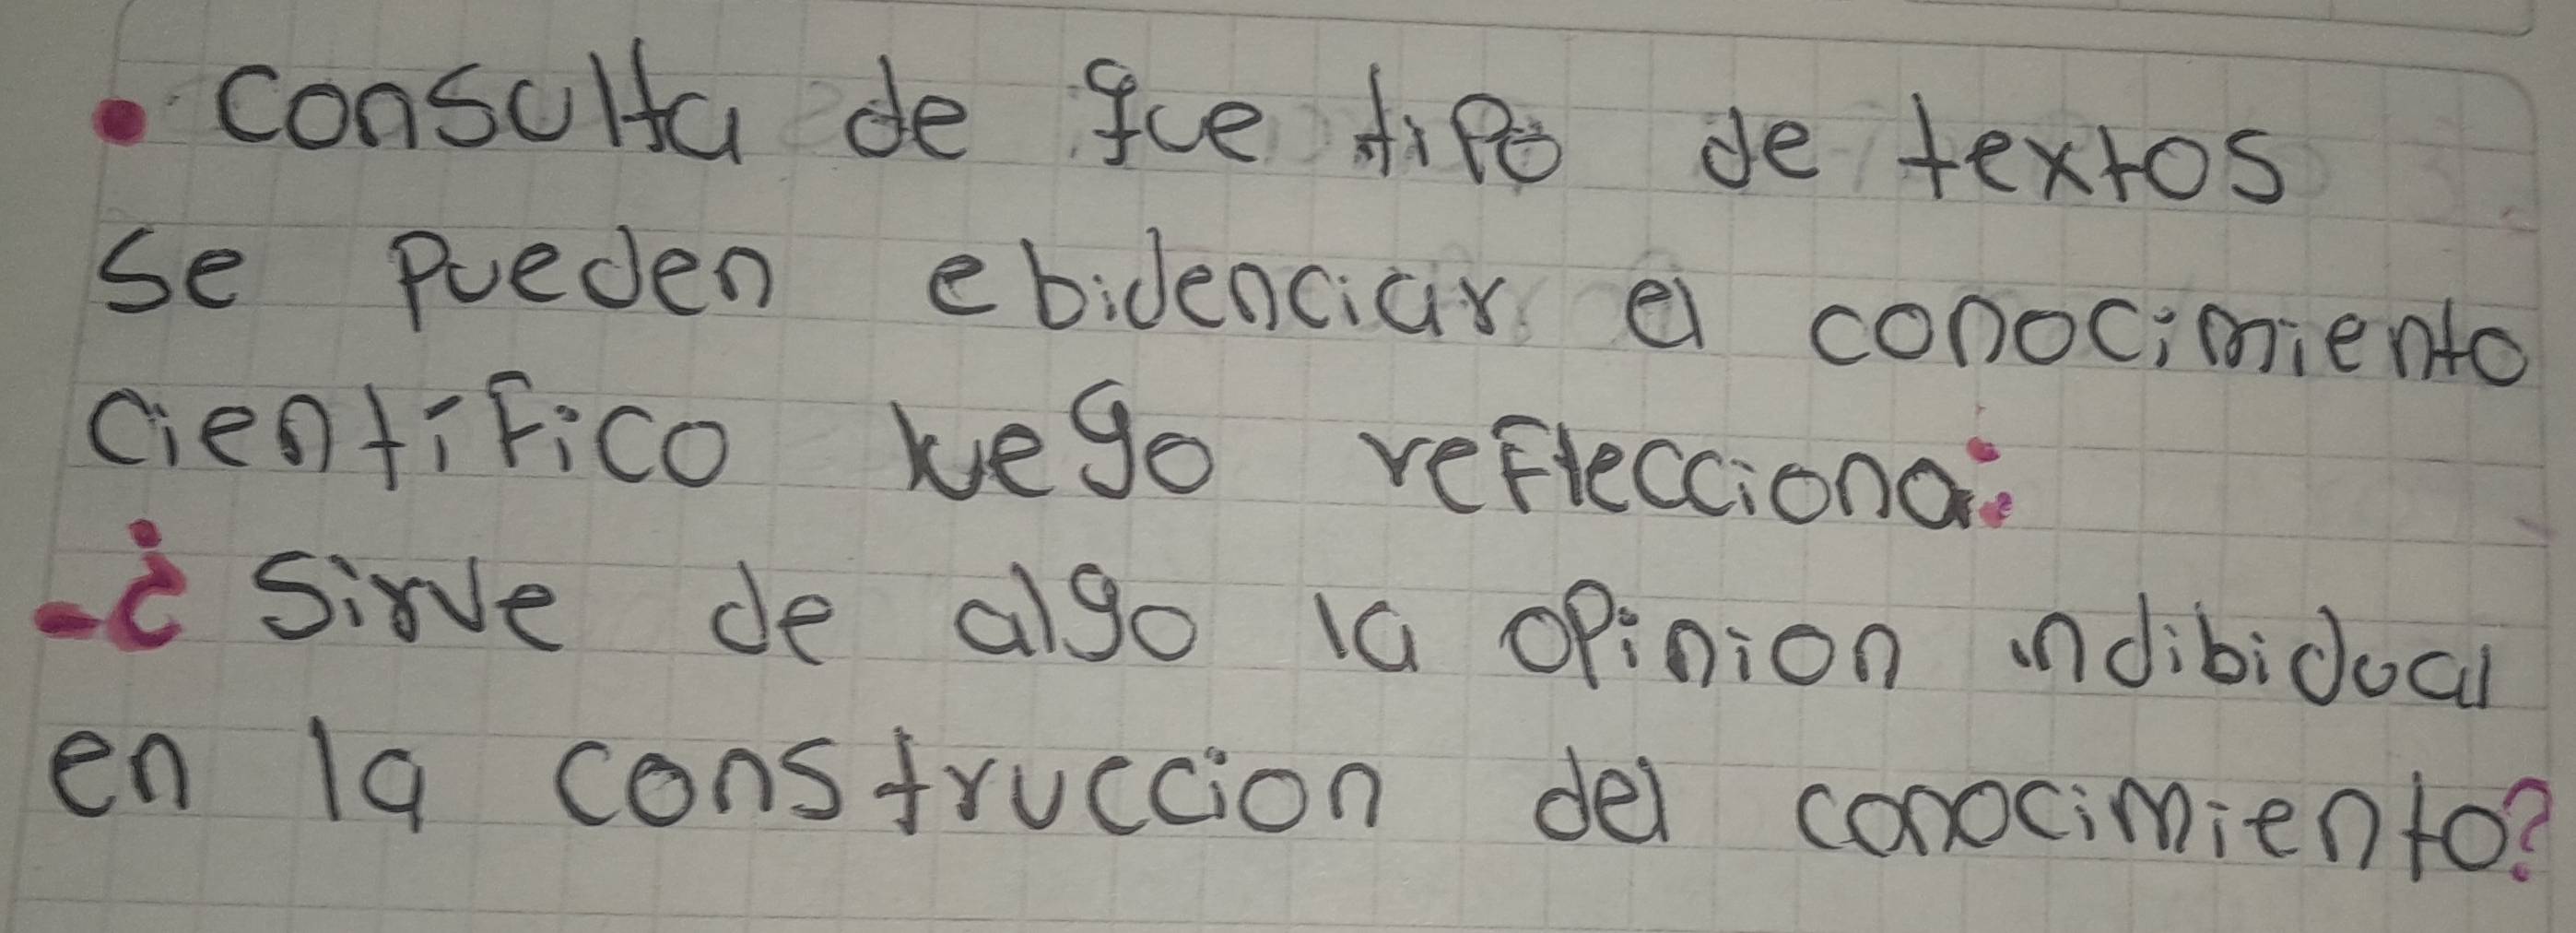 • consulta de que tipo de textos
se pueden ebidenciar el conocimiento
cientifico luego reflecciona:
-¿ Sirve de algo la opinion indibidual
en la construccion del conocimiento?